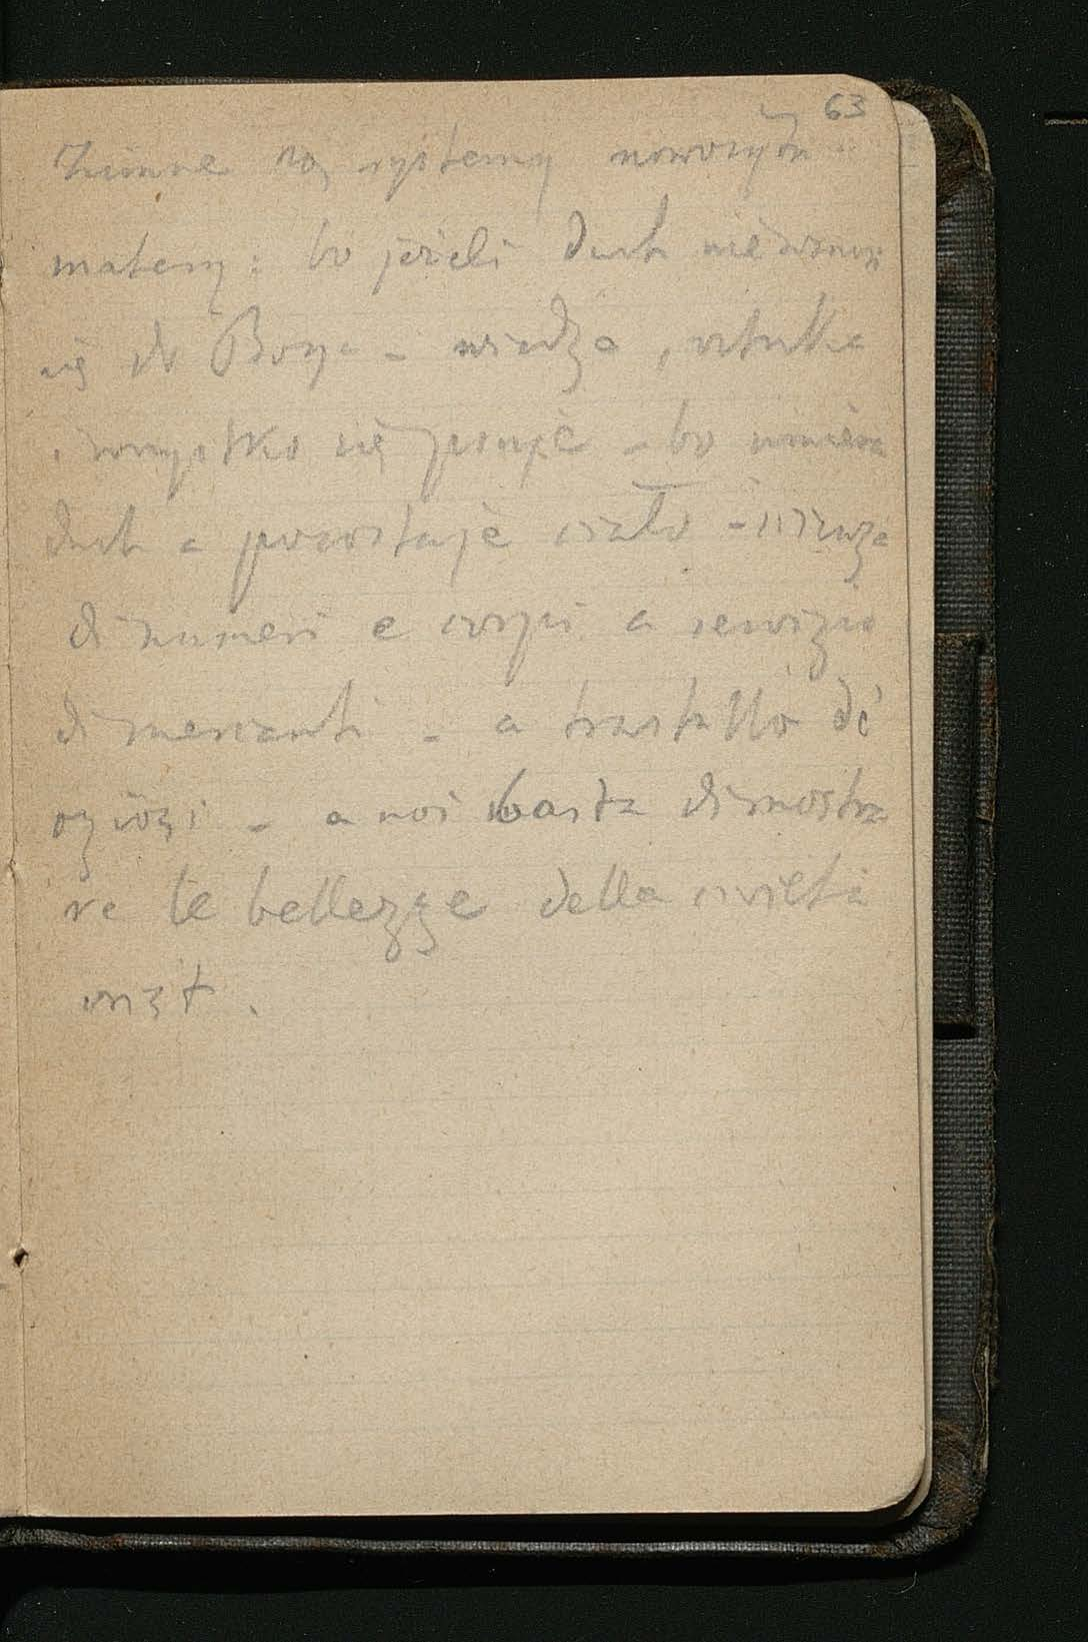 63
Zimne są systemy nowożytn
matery: bo jeżeli duch nie wznosi
się do Boga - wiedza, sztuka
i wszystko się psuje - bo umiera
duch a pozostaje ciało -
di numeri e corpi a servizio
di mercanti - a trastullo di
oziosi - a noi basta dimostra
re le bellezze della civiltà